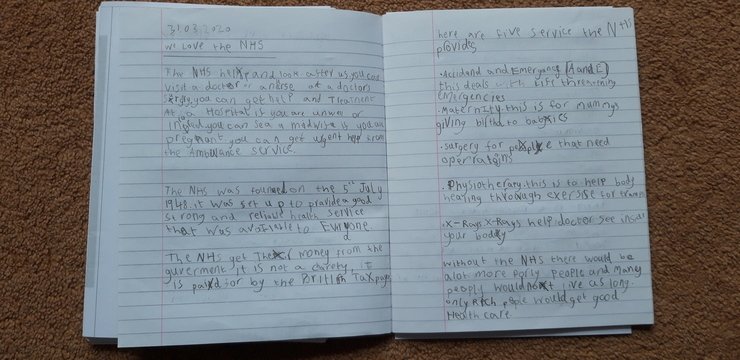 31.03.2020
We Love the NHS
The NHS help and look after us, you can
visit a doctor or a nurse at a doctors
you can get help and Treatment
At a Hospital if you are unwell or
Injed. you can sea a midwife if you are
pregnant. you can get urgent help from
the Ambulance service.
The NHS was founded on the 5th July
1948. it was set up to provide a good
strong and reliable health service
that was available to Everyone
The NHS get Their money from the
guverment, it is not a charety, IT
is paid for by the British Tax payer
here are five service the NHS
provides
. Accidand and Emergancy (A and E)
this deals with Life threatening
Emergencies
. Maternity. this is for mummys
giving birth to babies
. Surgery for people that need
operraions
. Physiotherapy. this is to help body
hearing through exersise for
. X-Rays X-Rays help doctor see inside
your body
without the NHS there would be
alot more porly people and many
people would not live as long.
only Rich peple would get good
Health care